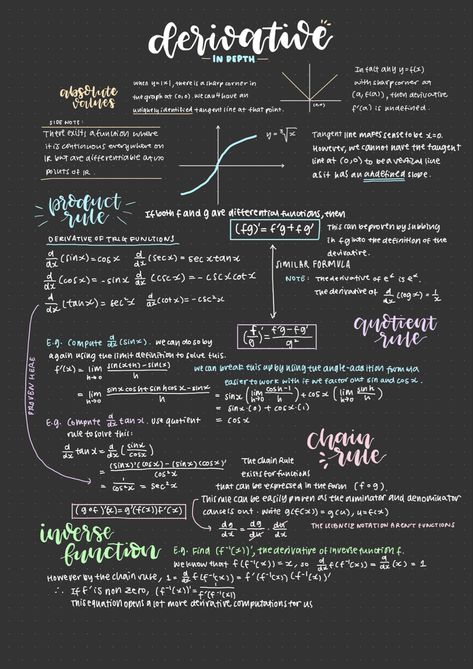 derivative
IN DEPTH
absolute values
when y=|x|, there is a sharp corner in
the graph at (0,0). we can't have an
uniquely identified tangent line at that point.
(0,0)
In fact any y=f(x)
with sharp corner at
(a, f(a)), then derivative
f'(a) is undefined.
SIDE NOTE:
There exists a function where
it is continuous everywhere on
IR but are differentiable at no
points of IR.
y = ³√x
Tangent line makes sense to be x=0.
However, we cannot have the tangent
line at (0,0) to be a vertical line
as it has an undefined slope.
product rule
If both f and g are differential functions, then
(fg)' = f'g + fg'
This can be proven by subbing
in f·g into the definition of the
derivative.
DERIVATIVE OF TRIG FUNCTIONS
d/dx (sinx) = cosx d/dx (secx) = secxtanx
d/dx (cosx) = -sinx d/dx (cscx) = -cscxcotx
d/dx (tanx) = sec²x d/dx (cotx) = -csc²x
SIMILAR FORMULA
NOTE: The derivative of eˣ is eˣ.
The derivative of d/dx (logx) = 1/x
(f/g)' = f'g-fg'/g²
quotient rule
PROVEN HERE
E.g. Compute d/dx (sinx). we can do so by
again using the limit definition to solve this.
f'(x) = lim h→0 sin(x+h)-sin(x)/h
we can break this up by using the angle-addition formula
easier to work with if we factor out sin and cosx.
= lim h→0 sinxcosh+sinhcosx-sinx/h = sinx (lim h→0 cosh-1/h) + cosx (lim h→0 sinh/h)
= sinx·(0) + cosx·(1)
= cosx
E.g. Compute d/dx tanx. Use quotient
rule to solve this:
d/dx tanx = d/dx (sinx/cosx)
= (sinx)'(cosx)-(sinx)(cosx)'/cos²x
= 1/cos²x = sec²x
chain rule
The Chain Rule
exists for functions
that can be expressed in the form (f∘g).
(g∘f)'(x) = g'(f(x))f'(x)
This rule can be easily proven as the nominator and denominator
cancels out. Write g(f(x)) = g(u), u=f(x)
dg/dx = dg/du · du/dx
THE LEIBNIZ NOTATION ARENT FUNCTIONS
inverse function
E.g. Find (f⁻¹(x))', the derivative of inverse function f.
We know that f(f⁻¹(x)) = x, so d/dx f(f⁻¹(x)) = d/dx (x) = 1
However by the chain rule, 1 = d/dx f(f⁻¹(x)) = f'(f⁻¹(x))(f⁻¹(x))'
∴ If f' is non zero, (f⁻¹(x))' = 1/f'(f⁻¹(x))
This equation opens a lot more derivative computations for us